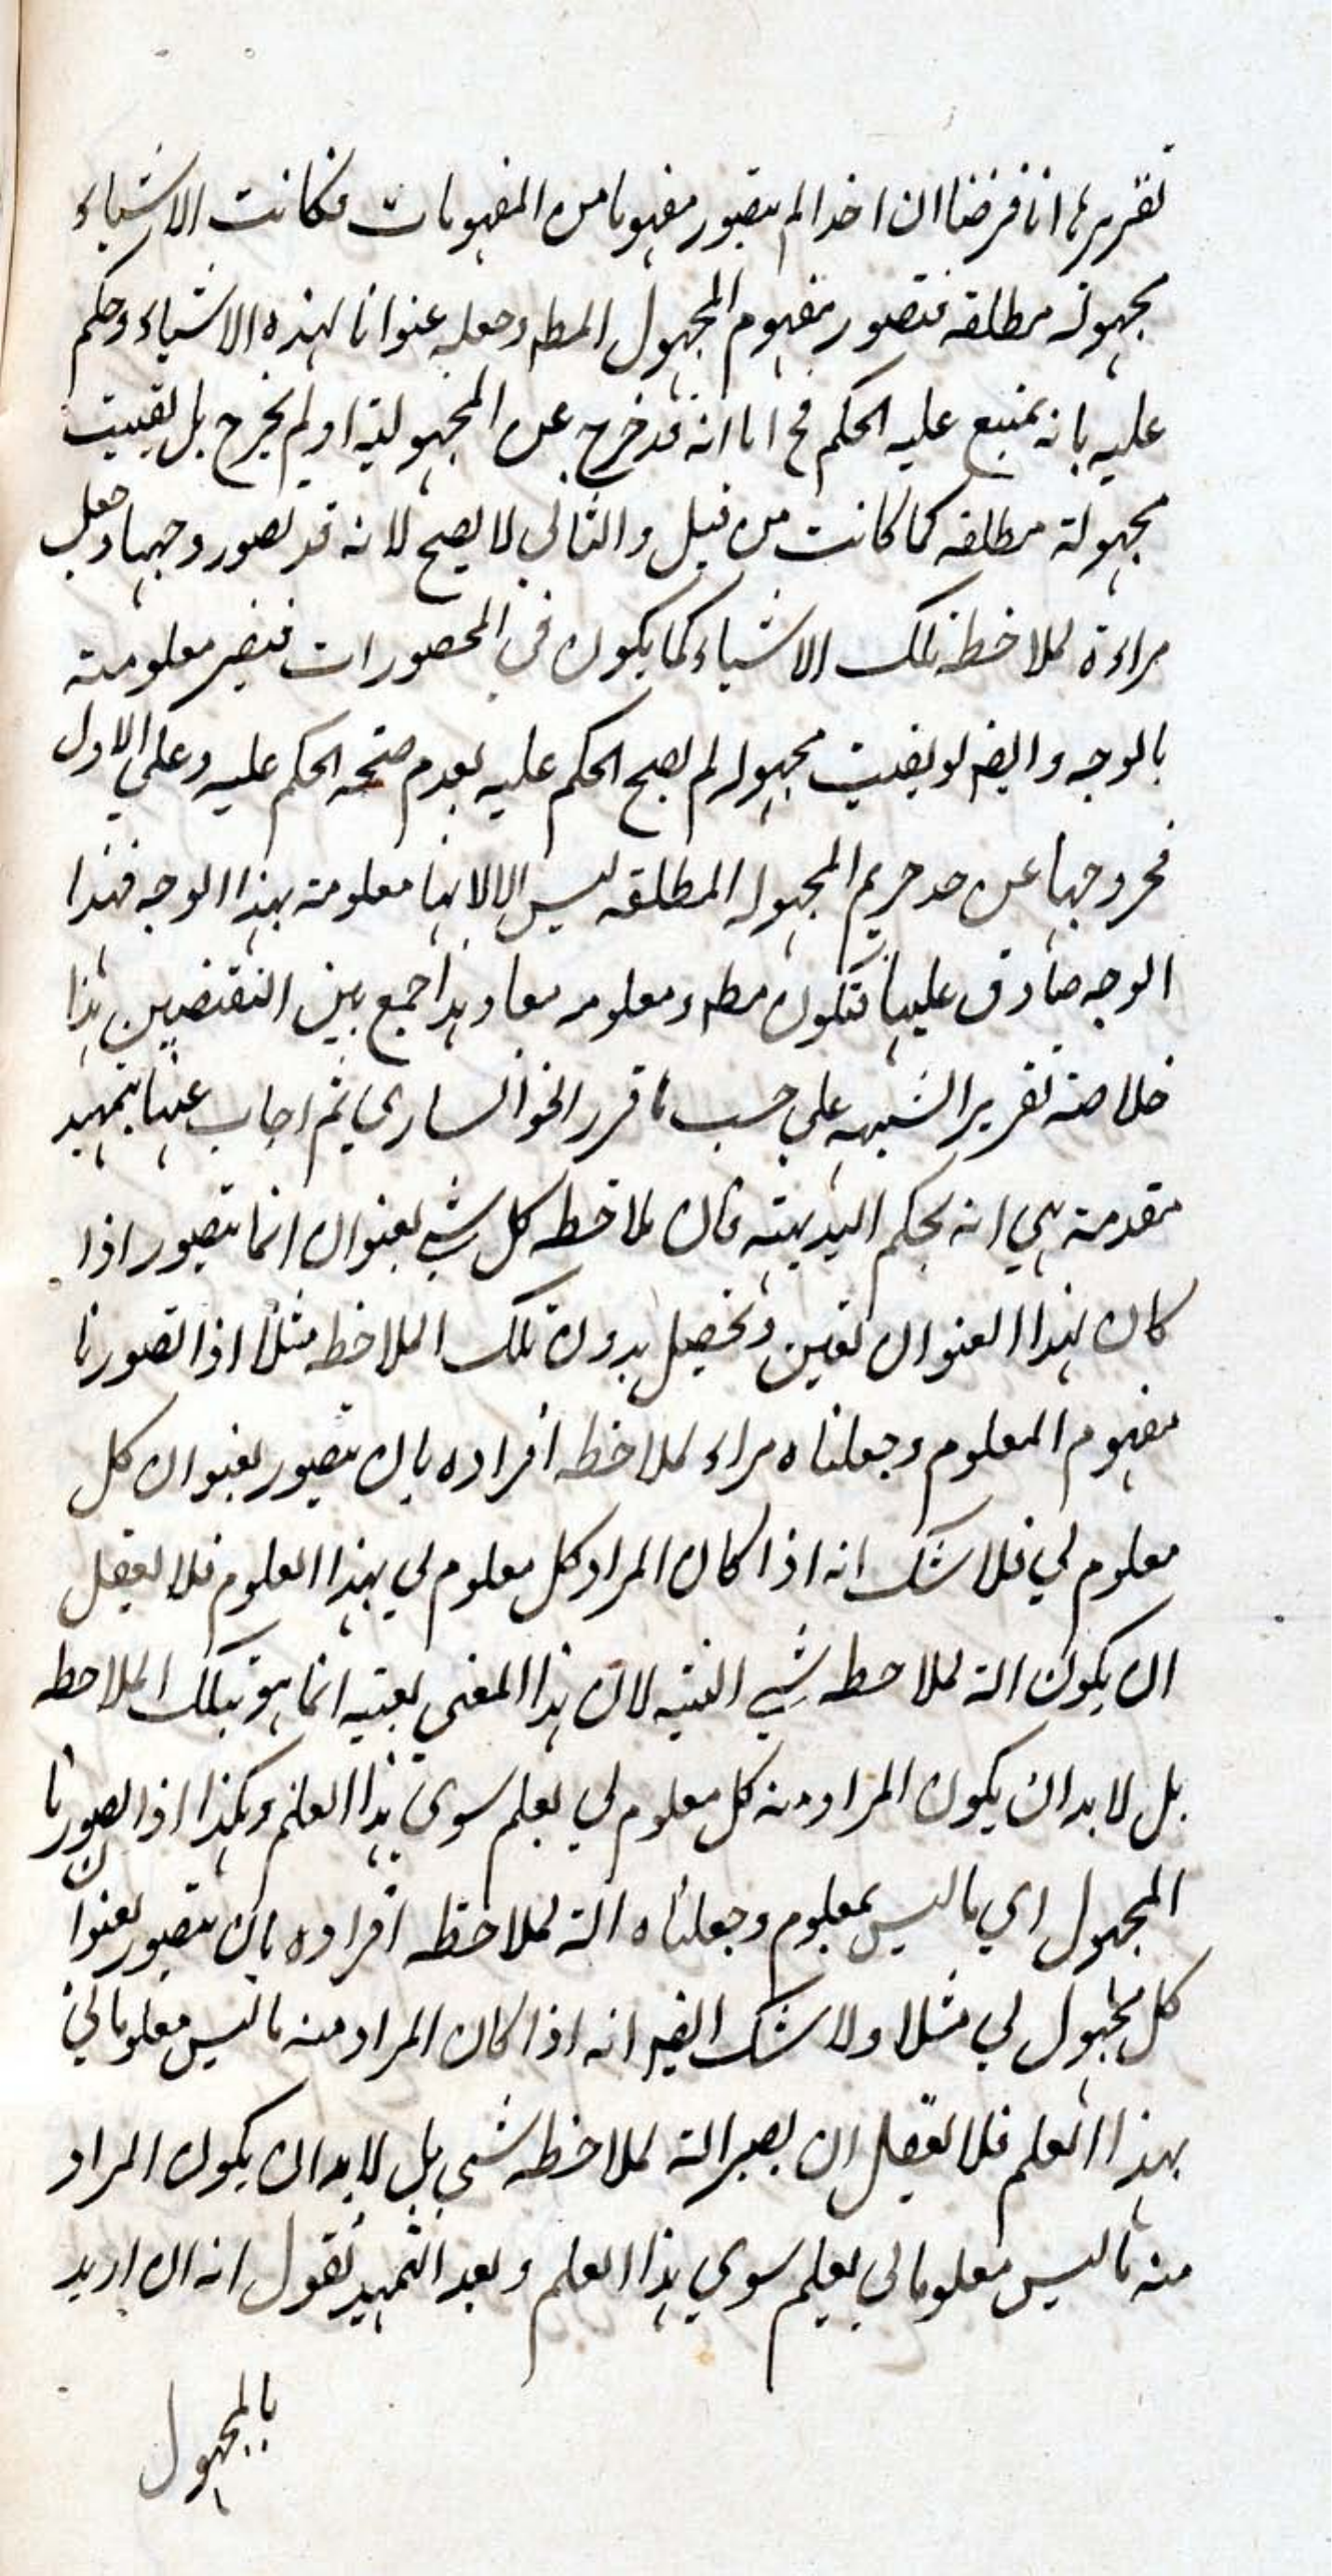 تقريرها انا فرضنا ان احدا لم يتصور مفهوما من المفهومات فكانت الاشياء
مجهولة مطلقه فتصور مفهوم المجهول المطه وجعله عنوانا لهذه الاشياء وحكم
عليه بانه يمتنع عليه الحكم فح اما انه قد خرج عن المجهولية او لم يخرج بل بقيت
مجهولة مطلقه كما كانت من قبل والثاني لا يصح لانه قد تصور وجهها وجعل
مراءة لملاحظة تلك الاشياء كما يكون في المحصورات فتصير معلومته
بالوجه وايضه لو بقيت مجهوله لم يصح الحكم عليه بعدم صحه الحكم عليه وعلى الاول
فخروجها عن حد حريم المجهوله المطلقه ليس الا لانها معلومة بهذا الوجه فهذا
الوجه صادق عليها فتكون مطه ومعلومه معا وهذا جمع بين النقيضين هذا
خلاصة تقرير الشبهه على حسب ما قرر الخوانساري ثم اجاب عنها بتمهيد
مقدمة هي انه بحكم البديهته فان ملاحظه كل شي بعنوان انما يتصور اذا
كان لهذا العنوان تعين وتحصيل بدون تلك الملاحظه مثلا اذا تصورنا
مفهوم المعلوم وجعلناه مراء لملاحظه افراده بان يتصور بعنوان كل
معلوم لي فلا شك انه اذا كان المراد كل معلوم لي بهذا العلوم فلا يعقل
ان يكون الة لملاحظه شي البتيه لان هذا المعنى بعينه انما هو بتلك الملاحظه
بل لا بد ان يكون المراد منه كل معلوم لي بعلم سوى هذا العلم وهكذا اذا تصورنا
المجهول اي ما ليس بمعلوم وجعلناه الة لملاحظه افراده بان يتصور بعنوان
كل مجهول لي مثلا ولا شك ايضه انه اذا كان المراد منه ما ليس معلوما لي
بهذا العلم فلا يعقل ان يصير الة لملاحظه شي بل لا بد ان يكون المراد
منه ما ليس معلوما لي بعلم سوي هذا العلم وبعد التمهيد نقول انه ان اريد
بالمجهول